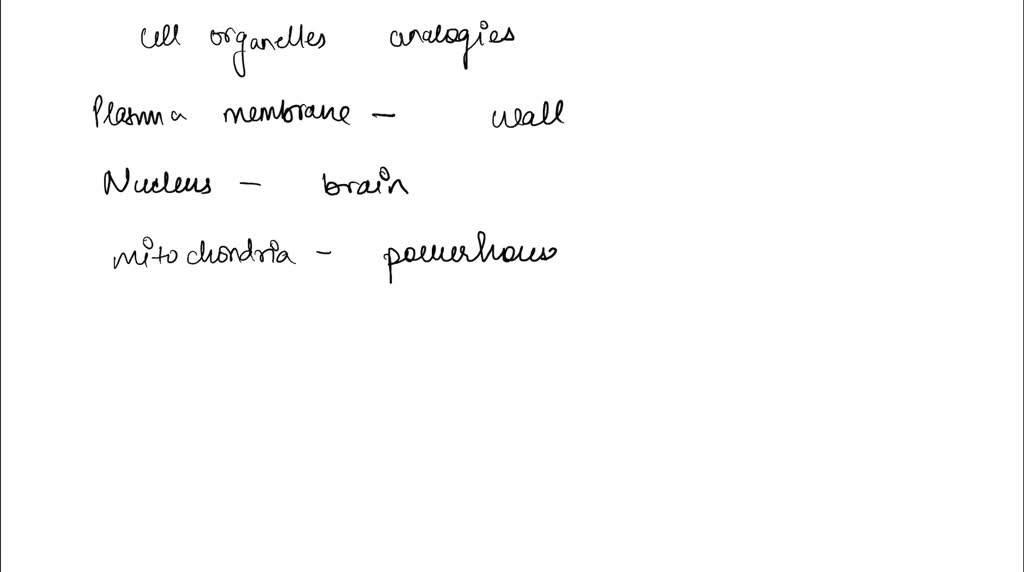 cell organelles analogies
Plasma membrane - wall
Nucleus - brain
mitochondria - powerhous